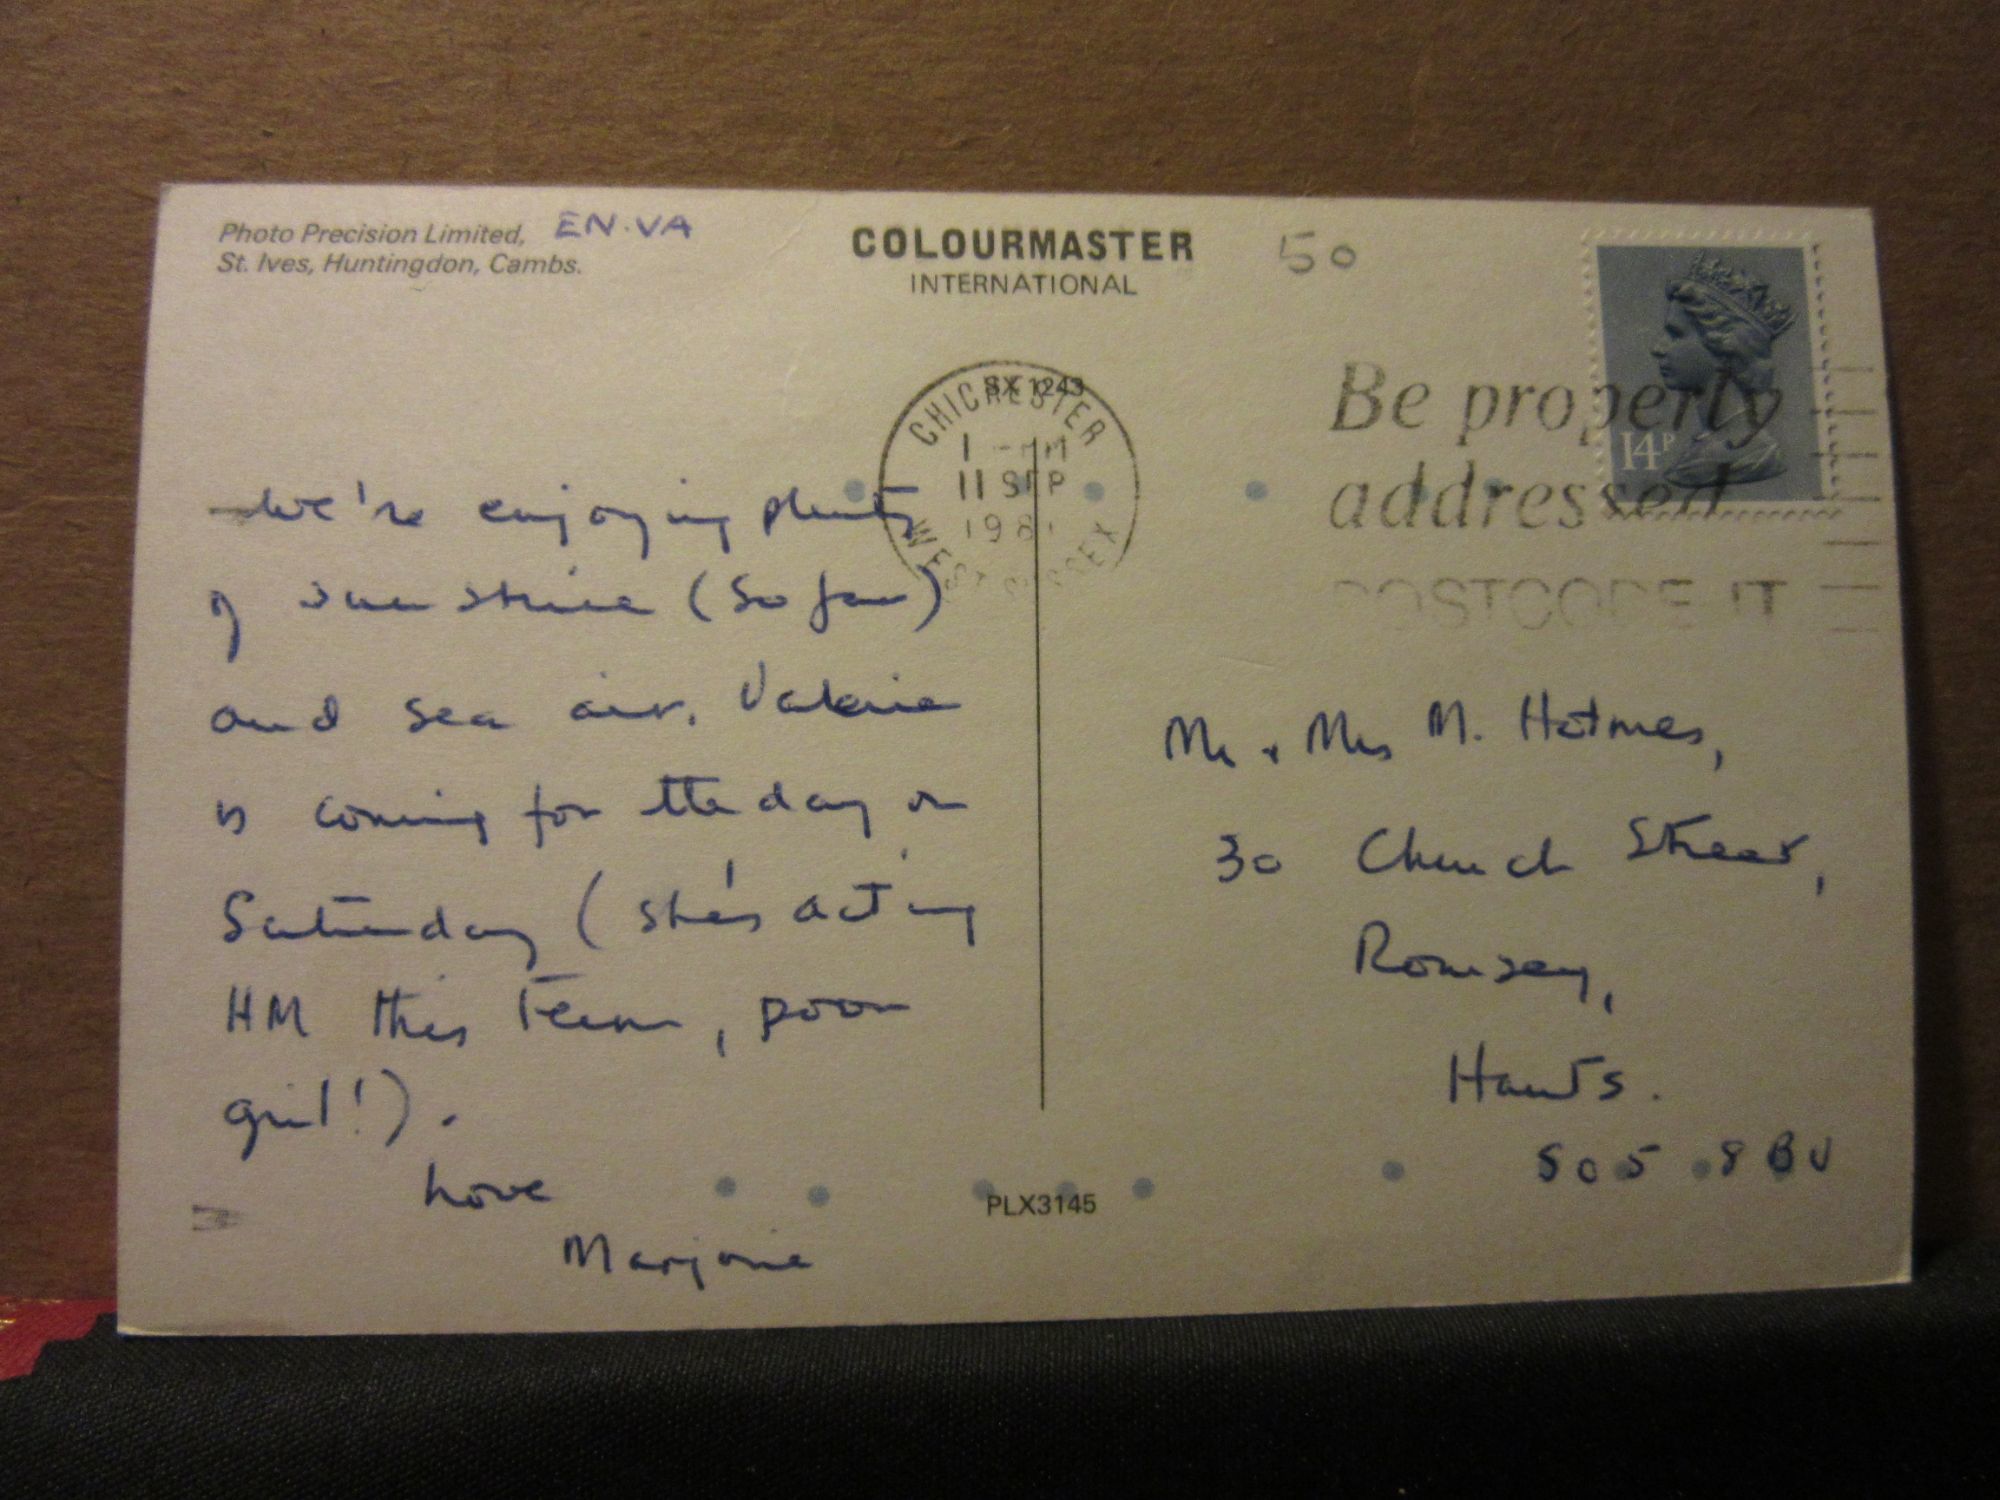 Photo Precision Limited, EN.VA
St. Ives, Huntingdon, Cambs.
COLOURMASTER
INTERNATIONAL
50
14P
SX 1243
CHICHESTER
1 - PM
11 SEP
198
WEST SUSSEX
Be properly
addressed
POSTCODE IT
We're enjoying plenty
of sunshine (So far)
and sea air. Valerie
is coming for the day on
Saturday (she's acting
HM this Term, poor
girl!).
Love
Marjorie
Mr & Mrs M. Holmes,
30 Church Street,
Romsey,
Hants.
SO5 8BU
PLX3145